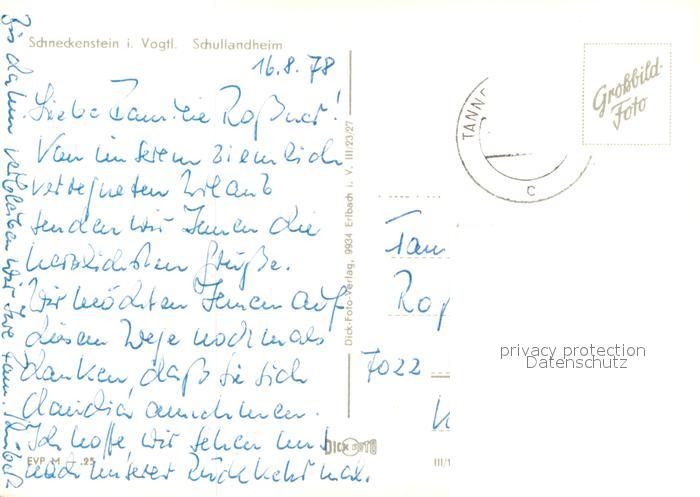 Schneckenstein i. Vogtl. Schullandheim
16.8.78
Liebe Familie Roßner!
Von unserem ziemlich
verregneten Urlaub
senden wir Ihnen die
herzlichsten Grüße.
Wir möchten Ihnen auf
diesem Wege nochmals
danken, daß sie sich
Claudia annehmen.
Ich hoffe, wir sehen uns
nach unserer Rückkehr mal.
Bis dahin verbleiben wir Ihre Fam.
EVP M -.25
Dick-Foto-Verlag, 9934 Erlbach i. V. III/23/27
DICK FOTO
III/1
TANN
C
Großbild-
Foto
Fam
Roß
7022
privacy protection
Datenschutz